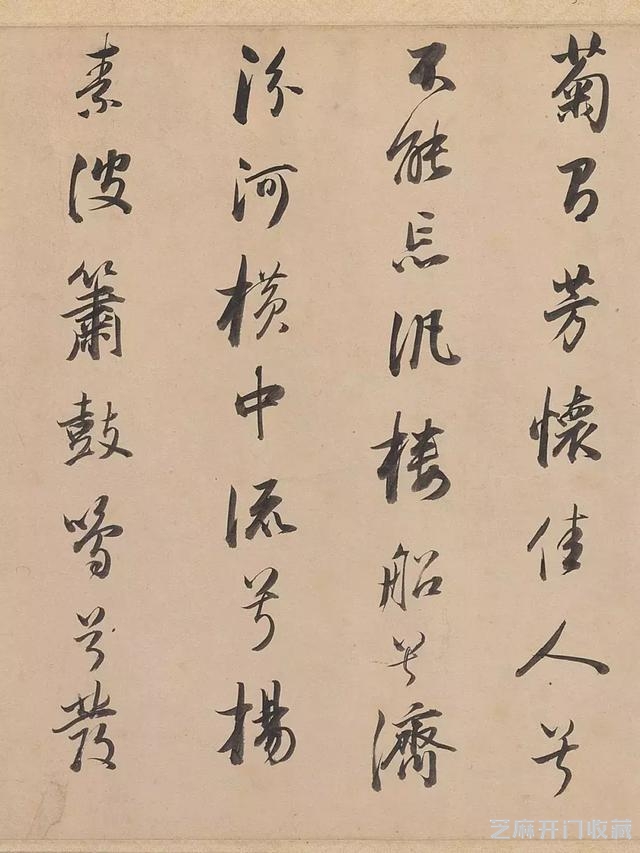 菊有芳懷佳人兮
不能忘汎樓船兮濟
汾河橫中流兮揚
素波簫鼓鳴兮發
芝麻开门收藏